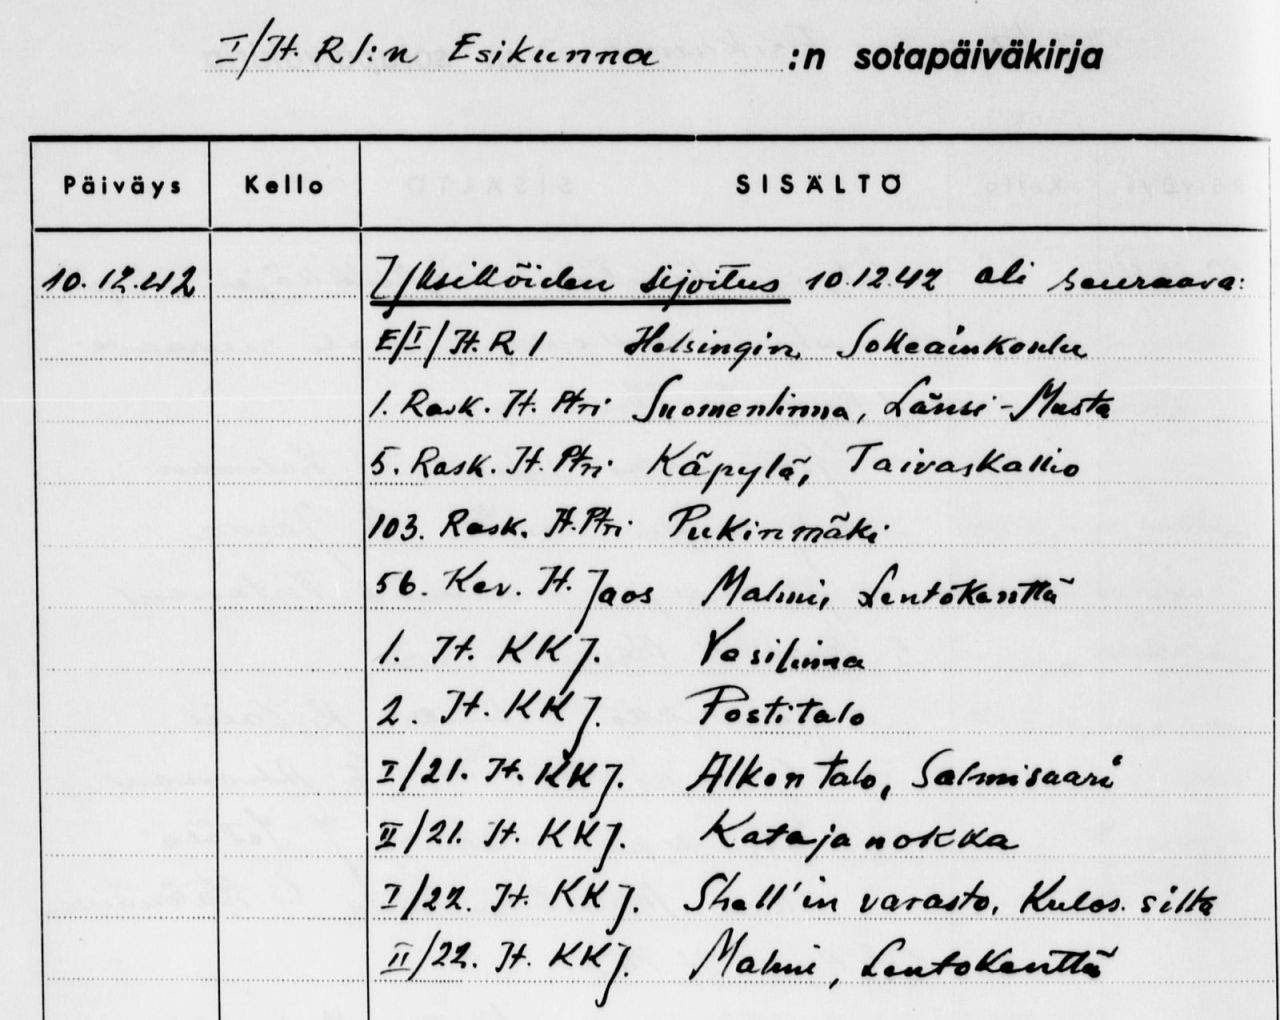 I/It. R 1:n Esikunna :n sotapäiväkirja
Päiväys Kello SISÄLTÖ
10.12.42 Yksiköiden sijoitus 10.12.42 oli seuraava:
E/I/It. R 1 Helsingin Sokeainkoulu
1. Rask. It. Ptri Suomenlinna, Länsi-Musta
5. Rask. It. Ptri Käpylä, Taivaskallio
103. Rask. It. Ptri Pukinmäki
56. Kev. It. Jaos Malmi, Lentokenttä
1. It. KKJ. Vesilinna
2. It. KKJ. Postitalo
I/21. It. KKJ. Alkon talo, Salmisaari
II/21. It. KKJ. Katajanokka
I/22. It. KKJ. Shell'in varasto, Kulos. silta
II/22. It. KKJ. Malmi, Lentokenttä